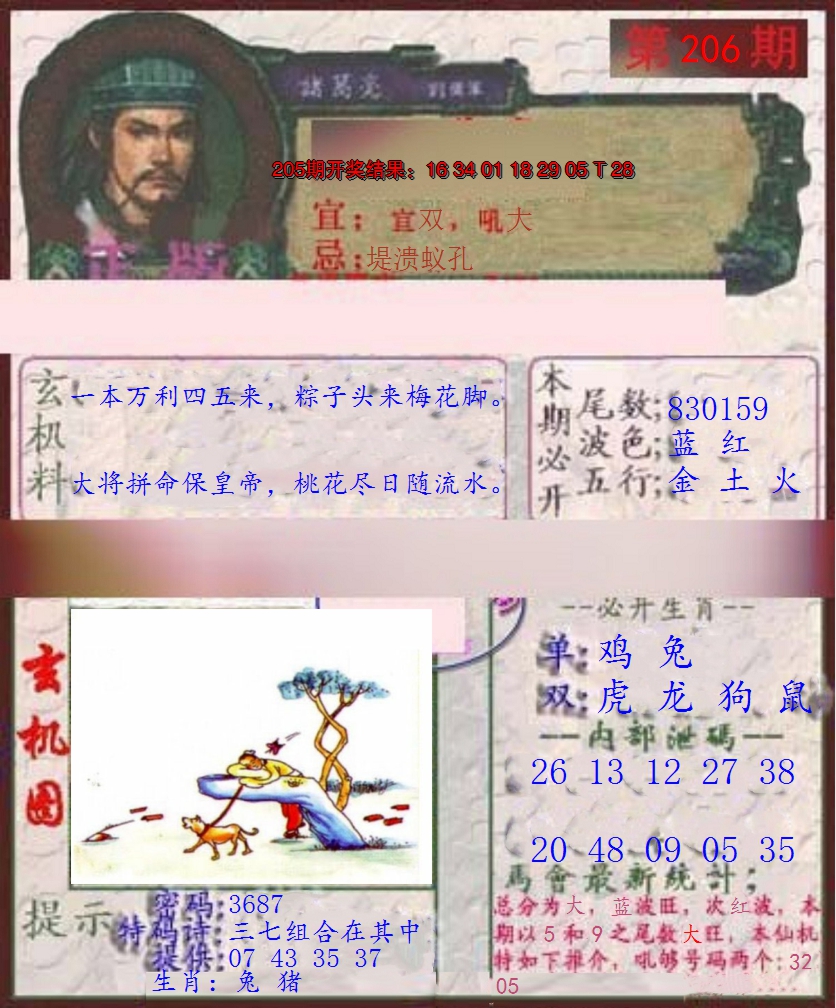 第 206 期
諸葛亮
205期开奖结果：16 34 01 18 29 05 T 28
宜；宜双，吼大
忌；堤溃蚁孔
正版
玄机料
一本万利四五来，粽子头来梅花脚。
大将拼命保皇帝，桃花尽日随流水。
本期必开
尾数；830159
波色；蓝 红
五行；金 土 火
玄机图
--必开生肖--
单：鸡 兔
双：虎 龙 狗 鼠
—内部泄碼—
26 13 12 27 38
20 48 09 05 35
馬會最新統計；
总分为大，蓝波旺，次红波，本
期以5和9之尾数大旺，本仙机
特如下推介，吼够号码两个：32
05
提示
密码：3687
特码诗：三七组合在其中
提供：07 43 35 37
生肖：兔 猪